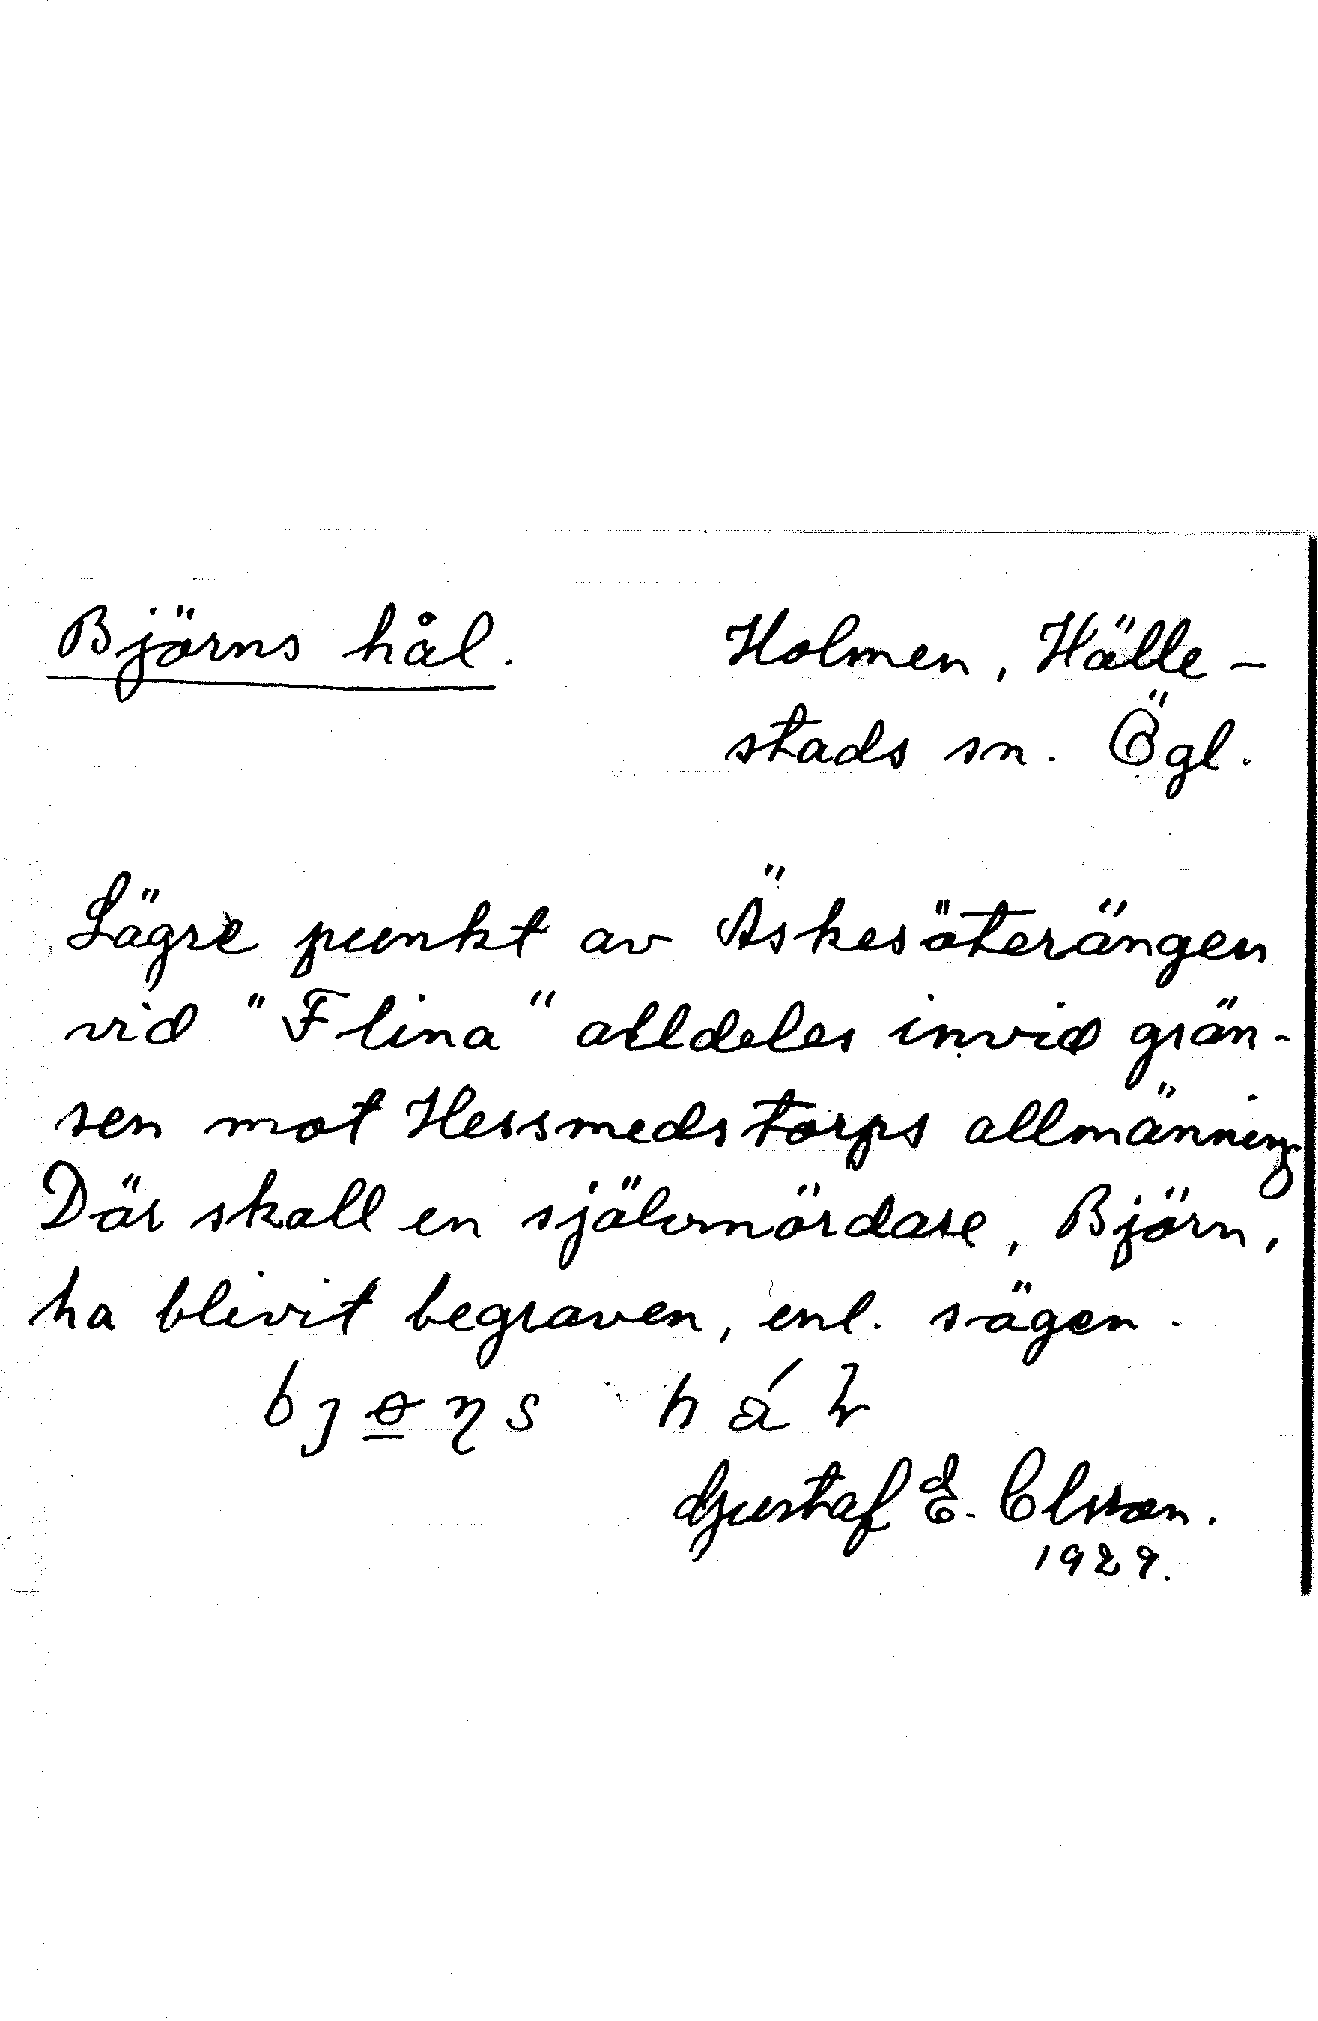 Björns hål. Holmen, Hälle-
stads sn. Ögl.
Lägre punkt av Äskesäterängen
vid "Flina" alldeles invid grän-
sen mot Hessmedstorps allmänning.
Där skall en självmördare, Björn,
ha blivit begraven, enl. sägen.
Gustaf E. Olsson.
1929.